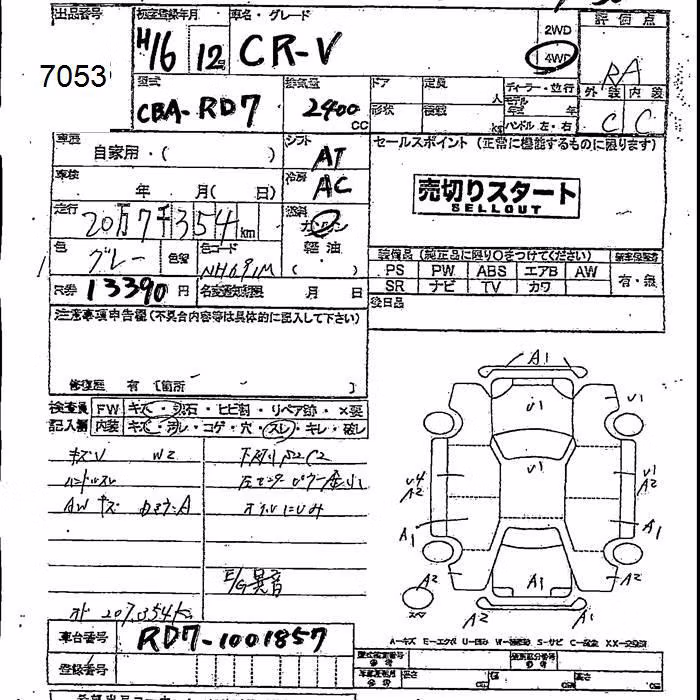 出品番号 初度登録年月 車名・グレード 2WD 評価点
7053 H16 12 CR-V 4WD RA
型式 排気量 ドア 定員 ディーラー・並行 外装 内装
CBA-RD7 2400 CC 形状 人 モデル 年 C C
ハンドル 左・右
車歴 シフト セールスポイント (正常に機能するものに限ります)
自家用・( ) AT
車検 年 月( 日) 冷房 AC
売切りスタート
SELLOUT
走行 20万7千354km 燃料 ガソリン
軽油
色 グレー 色替 色コード NH691M ( )
装備品 (純正品に限り○をつけてください)
PS PW ABS エアB AW 有・無
SR ナビ TV カワ
R券 13390円 名義変更期限 月 日 後日品
注意事項申告欄(不具合内容等は具体的に記入して下さい)
修復歴 有 [箇所 ]
検査員 FW キズ・飛石・ヒビ割・リペア跡・×要
記入欄 内装 キズ・汚レ・コゲ・穴・スレ・キレ・破レ
キズU W2
ハンドルスレ
AWキズ
オイルにじみ
E/G異音
207354K
A1
U1
U1
U4 A2
U1 A2
A1 A1
A2 A1 A2
A2 A1
A-キズ E-エクボ U-凹み W-補修跡 S-サビ C-腐食 XX-交換済
車台番号 RD7-1001857
登録番号
長さ cm 幅 cm 高さ cm